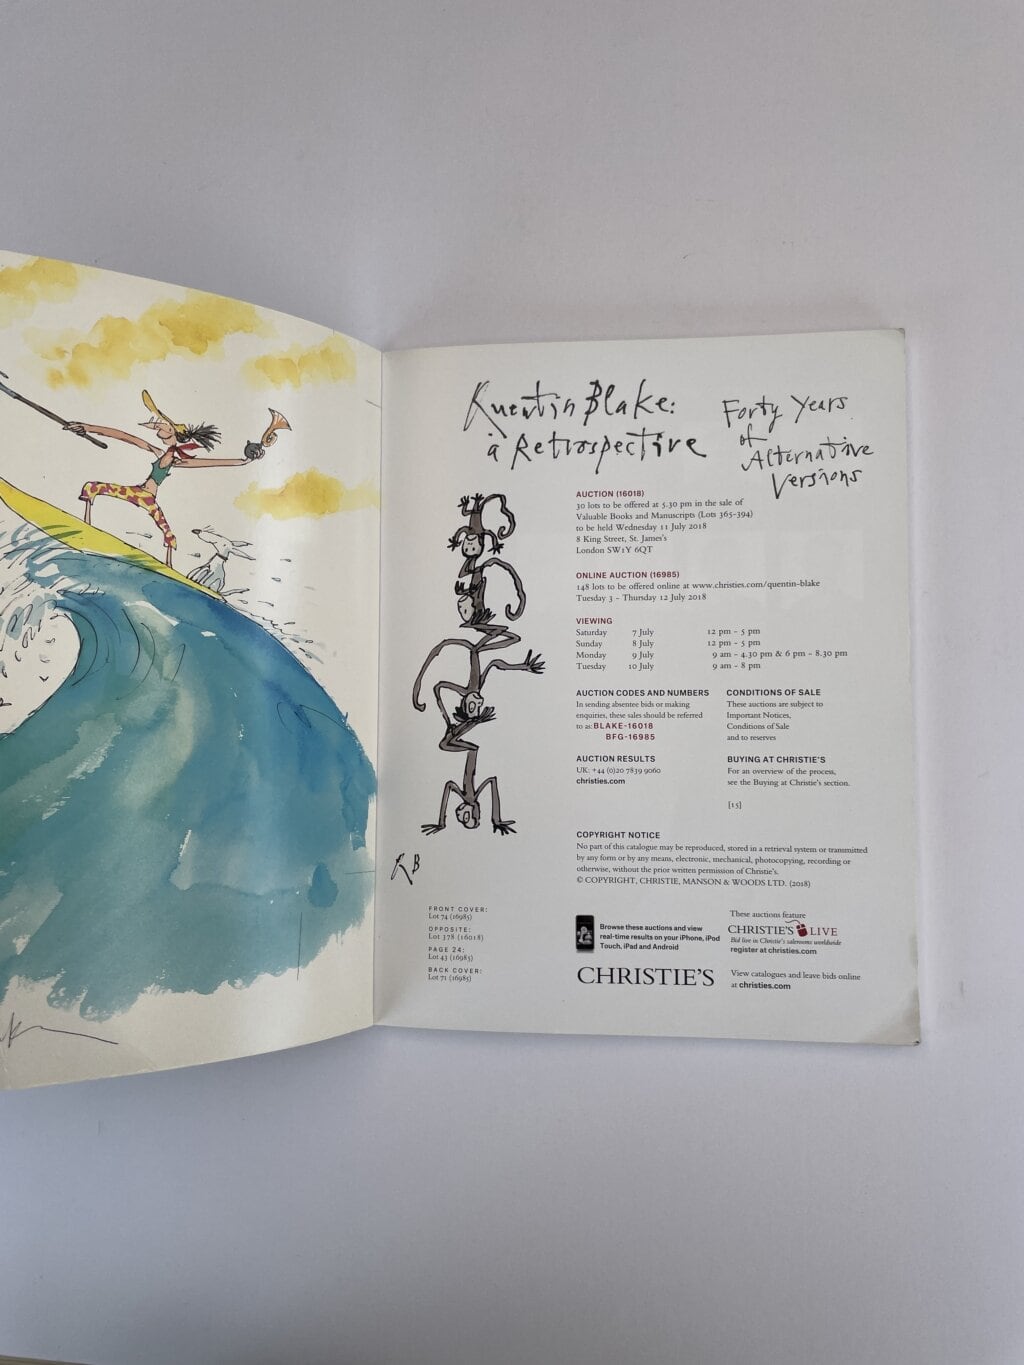 Quentin Blake:
a Retrospective
Forty Years
of
Alternative
Versions
AUCTION (16018)
30 lots to be offered at 5.30 pm in the sale of
Valuable Books and Manuscripts (Lots 365-394)
to be held Wednesday 11 July 2018
8 King Street, St. James's
London SW1Y 6QT
ONLINE AUCTION (16985)
148 lots to be offered online at www.christies.com/quentin-blake
Tuesday 3 - Thursday 12 July 2018
VIEWING
Saturday 7 July 12 pm - 5 pm
Sunday 8 July 12 pm - 5 pm
Monday 9 July 9 am - 4.30 pm & 6 pm - 8.30 pm
Tuesday 10 July 9 am - 8 pm
AUCTION CODES AND NUMBERS
In sending absentee bids or making
enquiries, these sales should be referred
to as: BLAKE-16018
BFG-16985
CONDITIONS OF SALE
These auctions are subject to
Important Notices,
Conditions of Sale
and to reserves
AUCTION RESULTS
UK: +44 (0)20 7839 9060
christies.com
BUYING AT CHRISTIE'S
For an overview of the process,
see the Buying at Christie's section.
[15]
COPYRIGHT NOTICE
No part of this catalogue may be reproduced, stored in a retrieval system or transmitted
by any form or by any means, electronic, mechanical, photocopying, recording or
otherwise, without the prior written permission of Christie's.
© COPYRIGHT, CHRISTIE, MANSON & WOODS LTD. (2018)
QB
FRONT COVER:
Lot 74 (16985)
OPPOSITE:
Lot 378 (16018)
PAGE 24:
Lot 43 (16985)
BACK COVER:
Lot 71 (16985)
Browse these auctions and view
real-time results on your iPhone, iPod
Touch, iPad and Android
These auctions feature
CHRISTIE'S LIVE
Bid live in Christie's salerooms worldwide
register at christies.com
CHRISTIE'S
View catalogues and leave bids online
at christies.com